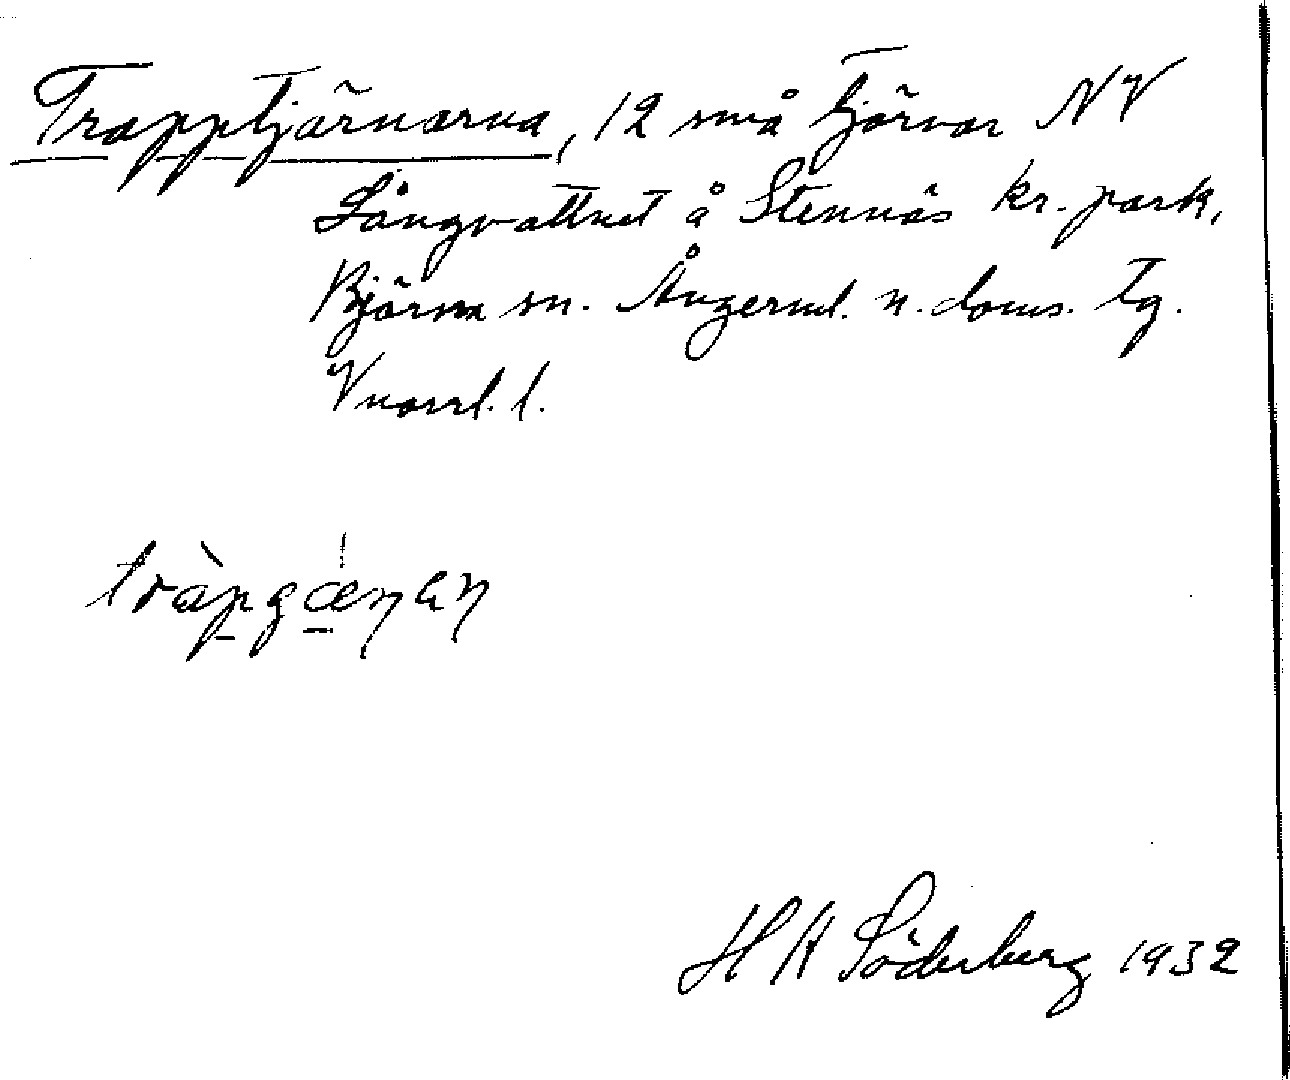 Trapptjärnarna, 12 små tjärnar NV
Långvattnet å Stennäs kr. park,
Björna sn. Ångerml. n. doms. tg.
Vnorrl. l.
tràpgæ̀ṇan
H A Söderberg 1932